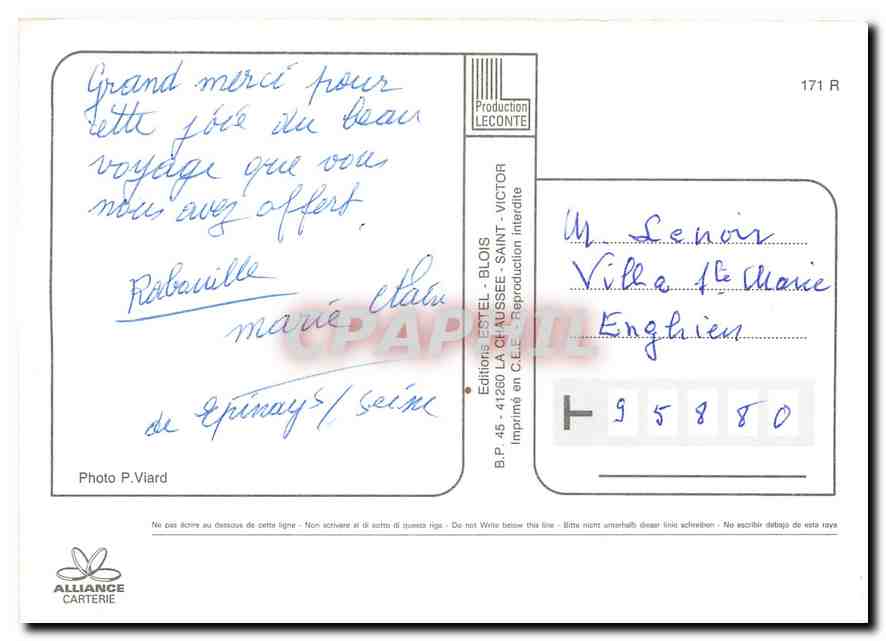 Grand merci pour
cette joie du beau
voyage que vous
nous avez offert.
Rabouille
marie claire
de Epinay s/ Seine
Photo P.Viard
Production
LECONTE
Editions ESTEL - BLOIS
B.P. 45 - 41260 LA CHAUSSEE - SAINT - VICTOR
Imprimé en C.E.E. - Reproduction interdite
171 R
M. Lenoir
Villa Ste Marie
Enghien
95880
CPAPHIL
Ne pas écrire au dessous de cette ligne - Non scrivere al di sotto di questa riga - Do not Write below this line - Bitte nicht unterhalb dieser linie schreiben - No escribir debajo de esta raya
ALLIANCE
CARTERIE